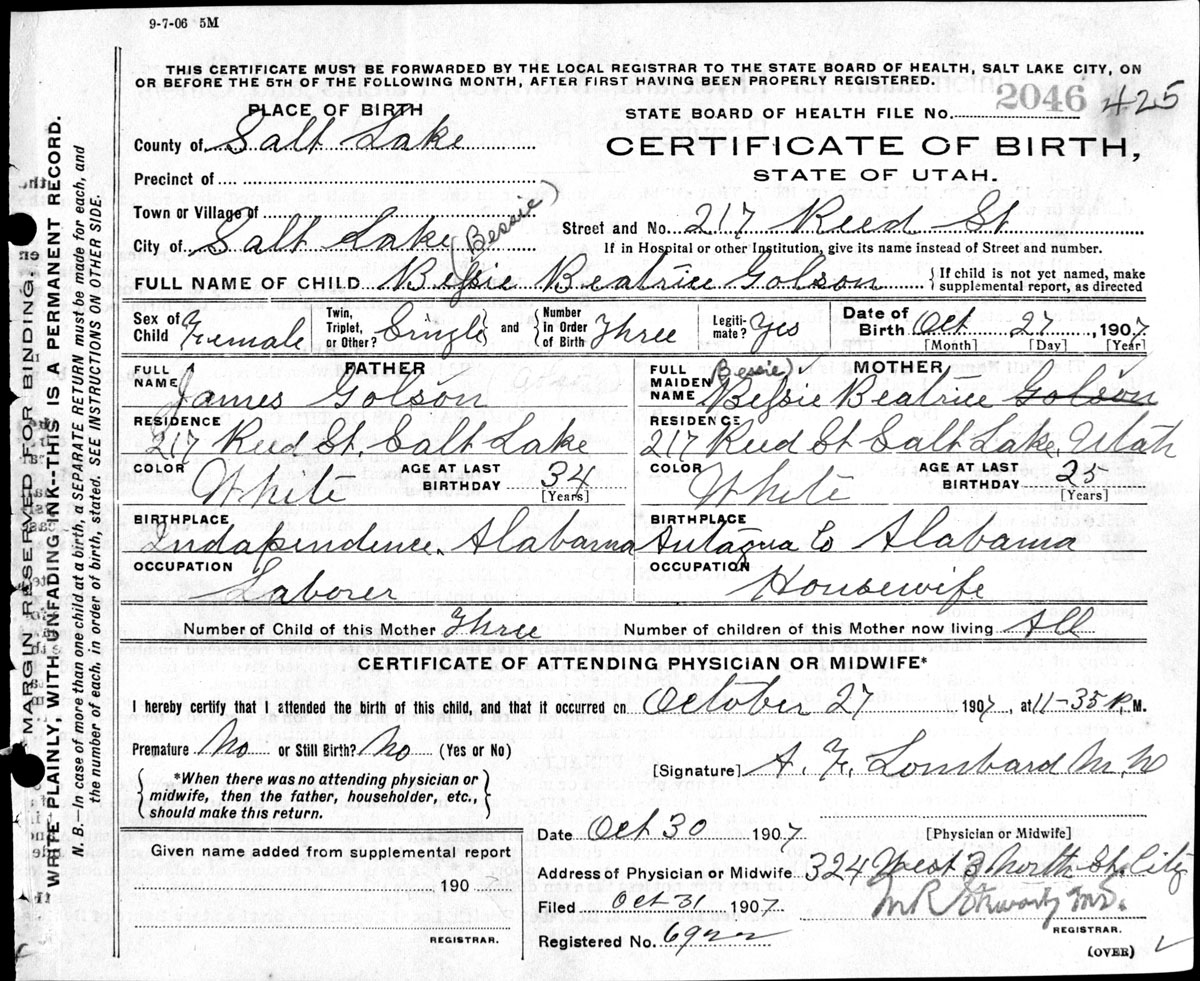 9-7-06 5M
THIS CERTIFICATE MUST BE FORWARDED BY THE LOCAL REGISTRAR TO THE STATE BOARD OF HEALTH, SALT LAKE CITY, ON
OR BEFORE THE 5TH OF THE FOLLOWING MONTH, AFTER FIRST HAVING BEEN PROPERLY REGISTERED.
PLACE OF BIRTH
STATE BOARD OF HEALTH FILE No. 2046 425
County of Salt Lake
CERTIFICATE OF BIRTH,
STATE OF UTAH.
Precinct of
Town or Village of
Street and No. 217 Reed St
City of Salt Lake
(Bessie)
If in Hospital or other Institution, give its name instead of Street and number.
FULL NAME OF CHILD Bessie Beatrice Golson
{If child is not yet named, make
supplemental report, as directed
Sex of Child Female
Twin, Triplet, or Other? Single
and
Number in Order of Birth Three
Legiti-mate? Yes
Date of Birth Oct 27, 1907
[Month] [Day] [Year]
FATHER
FULL NAME James Golson
MOTHER
FULL MAIDEN NAME (Bessie) Bessie Beatrice Golson
RESIDENCE
217 Reed St. Salt Lake
RESIDENCE
217 Reed St Salt Lake, Utah
COLOR White
AGE AT LAST BIRTHDAY 34
[Years]
COLOR White
AGE AT LAST BIRTHDAY 25
[Years]
BIRTHPLACE
Indapendence, Alabama
BIRTHPLACE
Autagua Co Alabama
OCCUPATION
Laborer
OCCUPATION
Housewife
Number of Child of this Mother Three
Number of children of this Mother now living All
CERTIFICATE OF ATTENDING PHYSICIAN OR MIDWIFE*
I hereby certify that I attended the birth of this child, and that it occurred on October 27 1907, at 11-35 P. M.
Premature No or Still Birth? No (Yes or No)
*When there was no attending physician or
midwife, then the father, householder, etc.,
should make this return.
[Signature] A. F. Lombard M.D
Date Oct 30 1907
[Physician or Midwife]
Given name added from supplemental report
190
REGISTRAR.
Address of Physician or Midwife 324 West 3 North St. City
Filed Oct 31 1907
M R Stewart MD.
REGISTRAR.
Registered No.
(OVER)
MARGIN RESERVED FOR BINDING.
WRITE PLAINLY, WITH UNFADING INK--THIS IS A PERMANENT RECORD.
N. B.—In case of more than one child at a birth, a SEPARATE RETURN must be made for each, and
the number of each, in order of birth, stated. SEE INSTRUCTIONS ON OTHER SIDE.